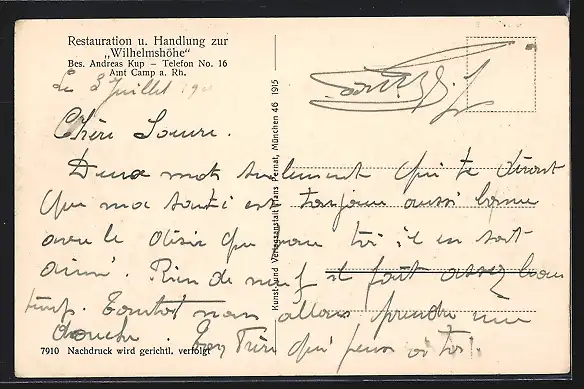 Restauration u. Handlung zur
„Wilhelmshöhe"
Bes. Andreas Kup — Telefon No. 16
Amt Camp a. Rh.
Le 3 Juillet
Chère Soeure.
Deux mots seulement qui te diront
que ma santé est toujours aussi bonne
avec le désir que pour toi il en soit
ainsi. Rien de neuf il fait assez beau
temp. Tantot nous allons prendre une
douche. Ton Frère qui pense à toi.
Kunst- und Verlagsanstalt Hans Pernat, München 46 1915
7910 Nachdruck wird gerichtl. verfolgt